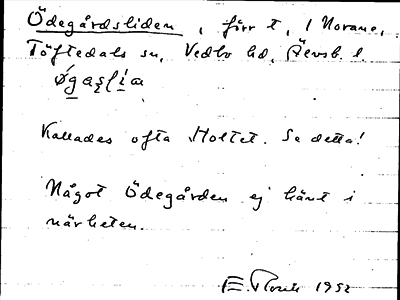 Ödegårdsliden, förr t, i Norane,
Töftedals sn, Vedbo hd, Älvsb. l.
Øgaslia
Kallades ofta Holtet. Se detta!
Något Ödegården ej känt i
närheten.
E. 1952